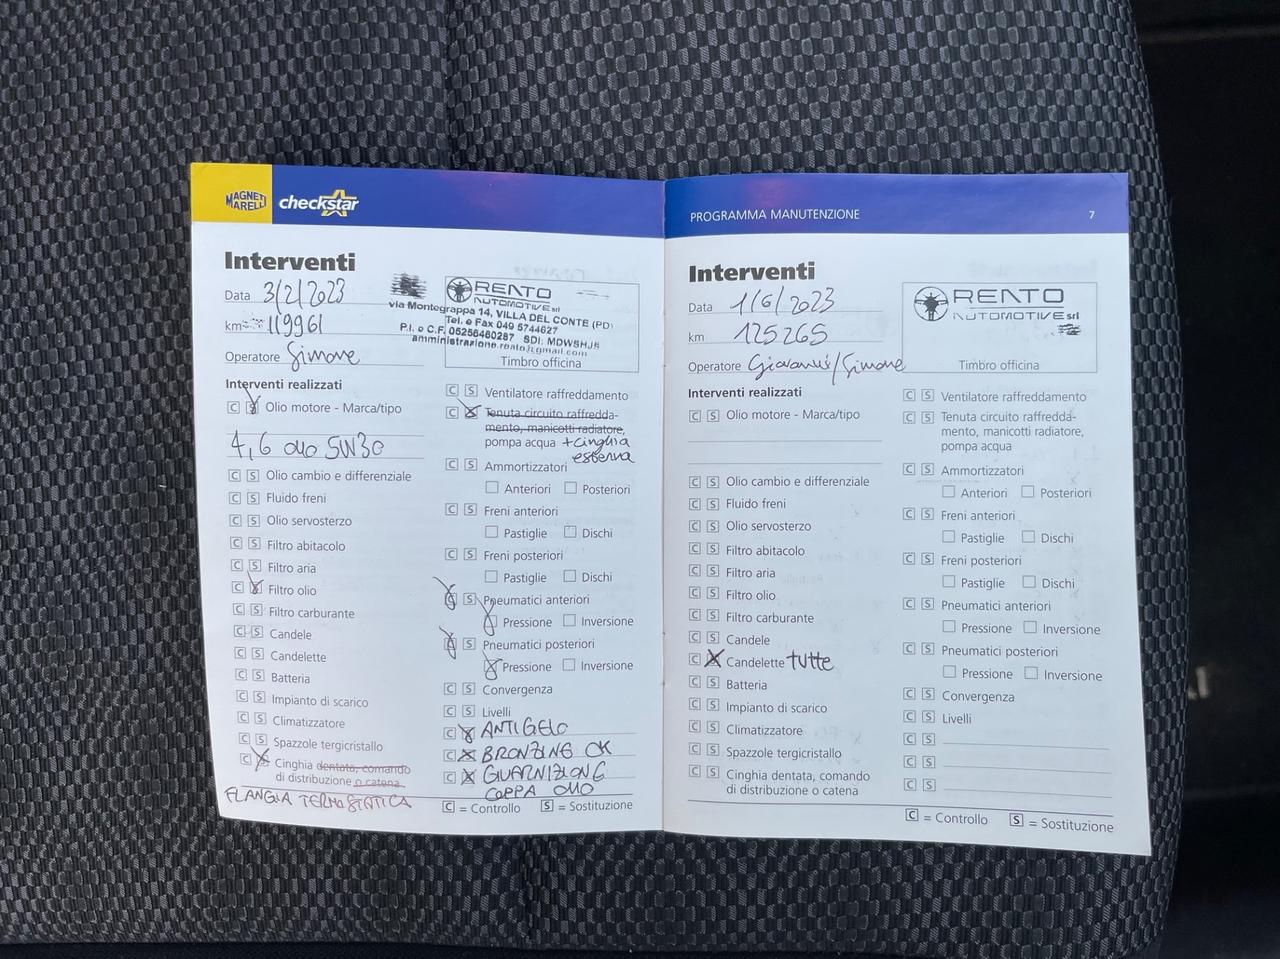 MAGNETI
MARELLI
checkstar
Interventi
Data 3/2/2023
km 119961
Operatore Simone
RENTO
AUTOMOTIVE srl
via Montegrappa 14, VILLA DEL CONTE (PD)
Tel. e Fax 049 5744627
P.I. e C.F. 05256460287 SDI: M5W8HJ8
amministrazione.reato@gmail.com
Timbro officina
Interventi realizzati
C S Olio motore - Marca/tipo
4,6 olio 5W30
C S Olio cambio e differenziale
C S Fluido freni
C S Olio servosterzo
C S Filtro abitacolo
C S Filtro aria
C S Filtro olio
C S Filtro carburante
C S Candele
C S Candelette
C S Batteria
C S Impianto di scarico
C S Climatizzatore
C S Spazzole tergicristallo
C S Cinghia dentata, comando
di distribuzione o catena
FLANGIA TERMOSTATICA
C S Ventilatore raffreddamento
C S Tenuta circuito raffredda-
mento, manicotti radiatore,
pompa acqua + cinghia
esterna
C S Ammortizzatori
Anteriori Posteriori
C S Freni anteriori
Pastiglie Dischi
C S Freni posteriori
Pastiglie Dischi
C S Pneumatici anteriori
Pressione Inversione
C S Pneumatici posteriori
Pressione Inversione
C S Convergenza
C S Livelli
C S ANTIGELO
C S BRONZINE OK
C S GUARNIZIONE
COPPA OLIO
C = Controllo S = Sostituzione
PROGRAMMA MANUTENZIONE 7
Interventi
Data 1/6/2023
km 125265
Operatore Giovanni/Simone
RENTO
AUTOMOTIVE srl
Timbro officina
Interventi realizzati
C S Olio motore - Marca/tipo
C S Olio cambio e differenziale
C S Fluido freni
C S Olio servosterzo
C S Filtro abitacolo
C S Filtro aria
C S Filtro olio
C S Filtro carburante
C S Candele
C S Candelette tutte
C S Batteria
C S Impianto di scarico
C S Climatizzatore
C S Spazzole tergicristallo
C S Cinghia dentata, comando
di distribuzione o catena
C S Ventilatore raffreddamento
C S Tenuta circuito raffredda-
mento, manicotti radiatore,
pompa acqua
C S Ammortizzatori
Anteriori Posteriori
C S Freni anteriori
Pastiglie Dischi
C S Freni posteriori
Pastiglie Dischi
C S Pneumatici anteriori
Pressione Inversione
C S Pneumatici posteriori
Pressione Inversione
C S Convergenza
C S Livelli
C S
C S
C S
C = Controllo S = Sostituzione